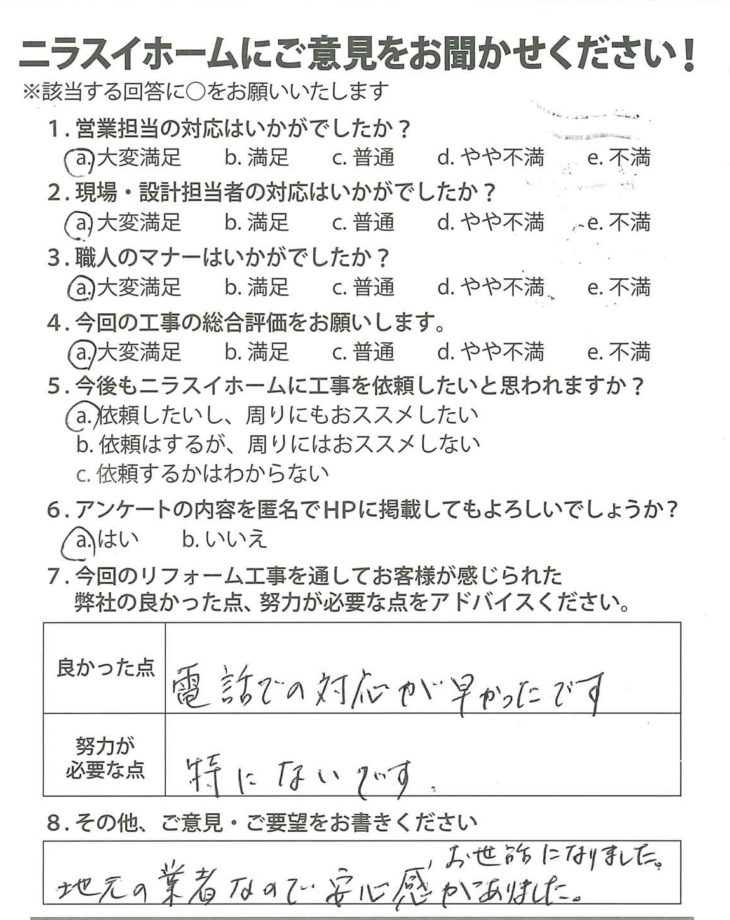 ニラスイホームにご意見をお聞かせください!
※該当する回答に○をお願いいたします
1.営業担当の対応はいかがでしたか?
a.大変満足 b.満足 c.普通 d.やや不満 e.不満
2.現場・設計担当者の対応はいかがでしたか?
a.大変満足 b.満足 c.普通 d.やや不満 e.不満
3.職人のマナーはいかがでしたか?
a.大変満足 b.満足 c.普通 d.やや不満 e.不満
4.今回の工事の総合評価をお願いします。
a.大変満足 b.満足 c.普通 d.やや不満 e.不満
5.今後もニラスイホームに工事を依頼したいと思われますか?
a.依頼したいし、周りにもおススメしたい
b.依頼はするが、周りにはおススメしない
c.依頼するかはわからない
6.アンケートの内容を匿名でHPに掲載してもよろしいでしょうか?
a.はい b.いいえ
7.今回のリフォーム工事を通してお客様が感じられた
弊社の良かった点、努力が必要な点をアドバイスください。
良かった点
電話での対応が早かったです
努力が
必要な点
特にないです.
8.その他、ご意見・ご要望をお書きください
地元の業者なので安心感がありました。
お世話になりました。